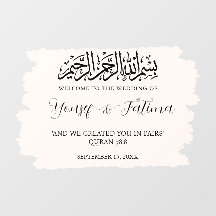 بسم الله الرحمن الرحيم
WELCOME TO THE WEDDING OF
Yousef & Fatima
'AND WE CREATED YOU IN PAIRS'
QURAN 78:8
SEPTEMBER 17, 20XX